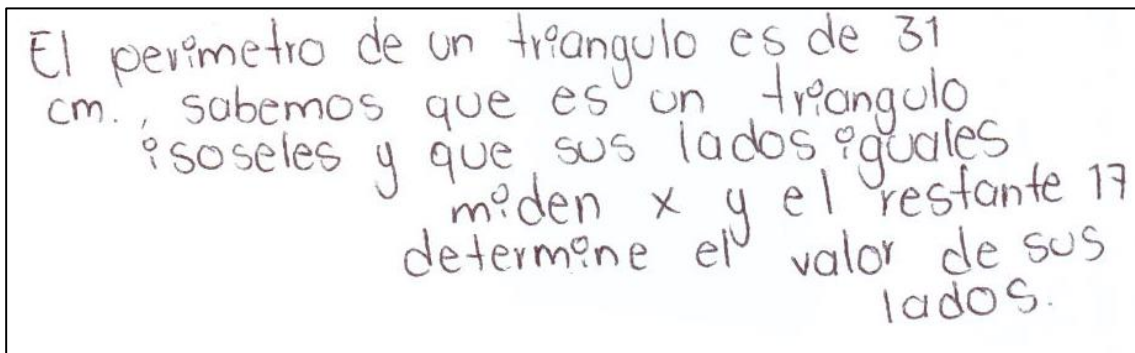 El perimetro de un triangulo es de 31
cm., sabemos que es un triangulo
isoseles y que sus lados iguales
miden x y el restante 17
determine el valor de sus
lados.